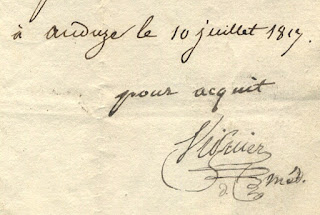 à anduze le 10 juillet 1817.
pour acquit
méd.